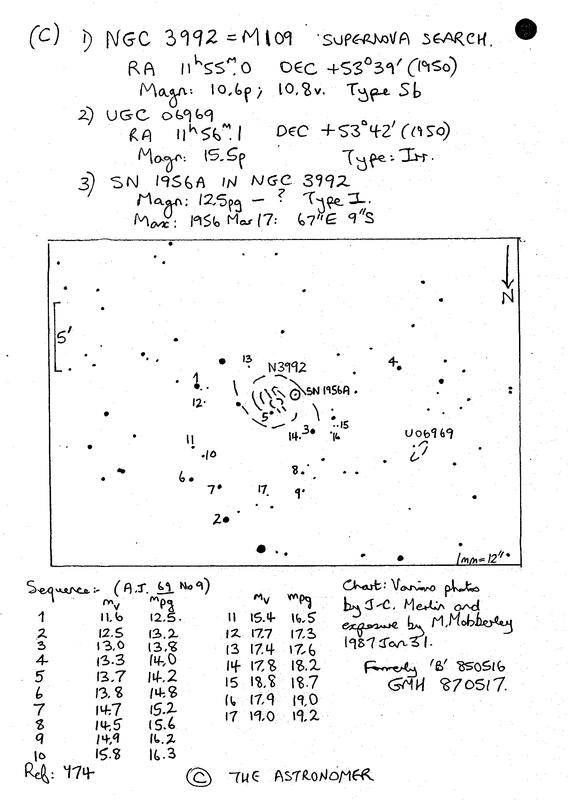 (C) 1) NGC 3992 = M109 SUPERNOVA SEARCH.
RA 11h55m.0 DEC +53°39' (1950)
Magn: 10.6p; 10.8v. Type Sb
2) UGC 06969
RA 11h56m.1 DEC +53°42' (1950)
Magn: 15.5p Type: Irr.
3) SN 1956A IN NGC 3992
Magn: 12.5pg — ? Type I.
Max: 1956 Mar 17: 67"E 9"S
N
5'
13
N3992
4
1
SN 1956A
12
5
15
14 3
16
U06969
11
10
8
6
7
17
9
2
1mm=12"
Sequence:- (A.J. 69 No 9)
mv mpg
1 11.6 12.5
2 12.5 13.2
3 13.0 13.8
4 13.3 14.0
5 13.7 14.2
6 13.8 14.8
7 14.7 15.2
8 14.5 15.6
9 14.9 16.2
10 15.8 16.3
mv mpg
11 15.4 16.5
12 17.7 17.3
13 17.4 17.6
14 17.8 18.2
15 18.8 18.7
16 17.9 19.0
17 19.0 19.2
Chart: Various photos
by J-C. Merlin and
exposure by M. Mobberley
1987 Jan 31.
Formerly 'B' 850516
GMH 870517.
Ref: 474
© THE ASTRONOMER